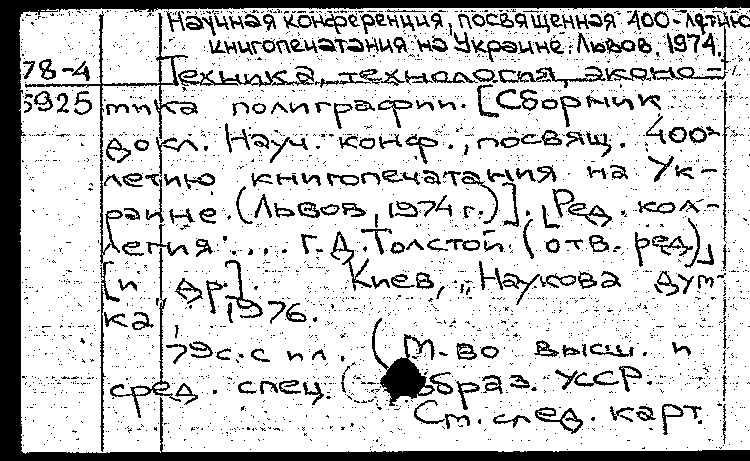 Научная конференция, посвященная 400-летию
книгопечатания на Украине. Львов, 1974.
78-4 Техника, технология, эконо-
5925 мика полиграфии. [Сборник
докл. Науч. конф., посвящ. 400-
летию книгопечатания на Ук-
раине. (Львов, 1974 г.)]. [Ред. кол-
легия: ... Г. Д. Толстой (отв. ред.)
[и др.]. Киев, "Наукова дум-
ка", 1976.
79 с. с ил. (М-во высш. и
сред. спец. образ. УССР.
См. след. карт.